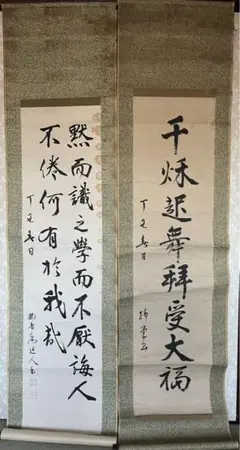 千秋起舞拜受大福
丁亥春日
默而識之學而不厭誨人
不倦何有於我哉
丁亥春日